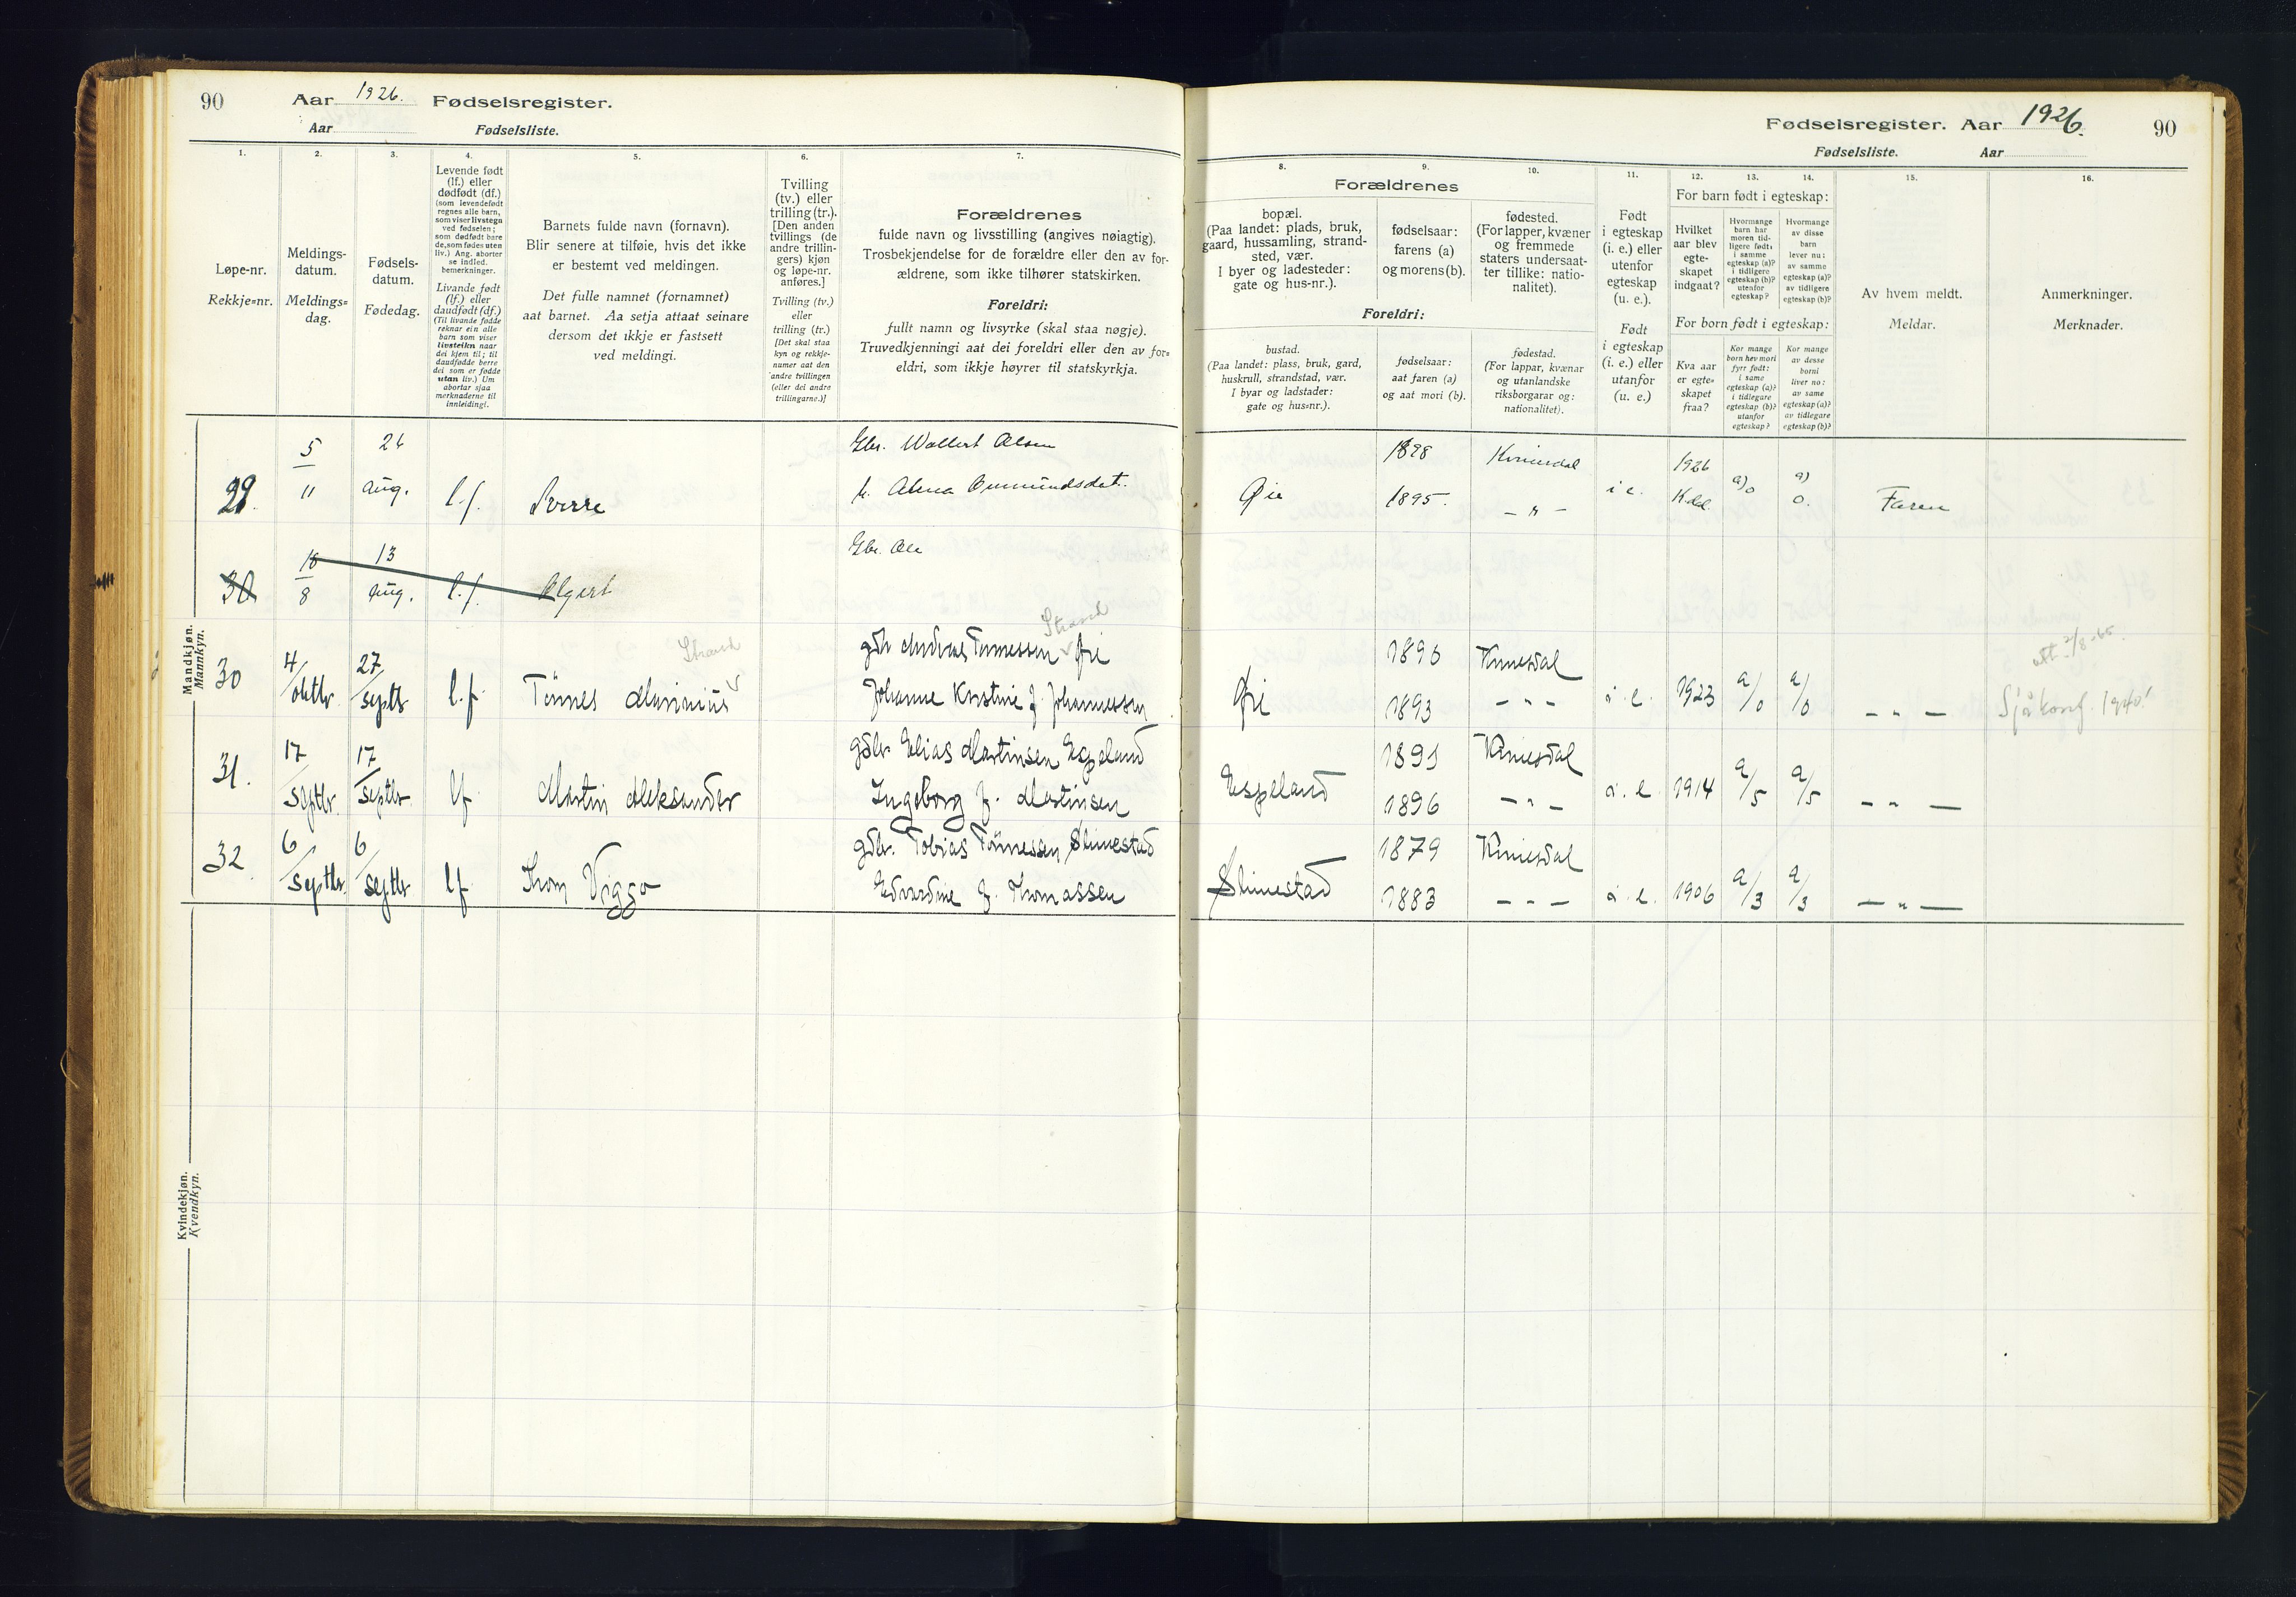 90 Aar 1926. Fødselsregister.
Aar Fødselsliste.
1. 2. 3. 4. 5. 6. 7.
Løpe-nr.
Rekkje=nr.
Meldings-
datum.
Meldings=
dag.
Fødsels-
datum.
Fødedag.
Levende født
(lf.) eller
dødfødt (df.)
(som levendefødt
regnes alle barn,
som viser livstegn
ved fødselen;
som dødfødt bare
de, som fødes uten
liv.) Ang. aborter
se indled.
bemerkninger.
Livande født
(lf.) eller
daudfødt (df.)
(Til livande fødde
reknar ein alle
barn som viser
livsteikn naar
dei kjem til; til
daudfødde berre
dei som er fødde
utan liv.) Um
abortar sjaa
merknaderne til
innleidingi.
Barnets fulde navn (fornavn).
Blir senere at tilføie, hvis det ikke
er bestemt ved meldingen.
Det fulle namnet (fornamnet)
aat barnet. Aa setja attaat seinare
dersom det ikkje er fastsett
ved meldingi.
Tvilling
(tv.) eller
trilling (tr.).
[Den anden
tvillings (de
andre trillin-
gers) kjøn
og løpe-nr.
anføres.]
Tvilling (tv.)
eller
trilling (tr.)
[Det skal staa
kyn og rekkje-
numer aat den
andre tvillingen
(eller dei andre
trillingarne.)]
Forældrenes
fulde navn og livsstilling (angives nøiagtig).
Trosbekjendelse for de forældre eller den av for-
ældrene, som ikke tilhører statskirken.
Foreldri:
fullt namn og livsyrke (skal staa nøgje).
Truvedkjenningi aat dei foreldri eller den av for=
eldri, som ikkje høyrer til statskyrkja.
Mandkjøn.
Mannkyn.
29. 5/11 26 aug. l.f. Sverre
Gbr. Wallert Olsen
f. Gunmundsdat.
30 18/8 13 aug. l.f. Algert
Gbr. Ole
30 4/oktbr 27/septb l.f. Tønnes Marinius Strand
gdb Andreas Tønnessen Øie Strand
Johanne Kristine f. Johannessen
31. 17/septbr 17/septbr lf Martin Aleksander
gdbr Elias Martinsen Espeland
Ingeborg f. Martinsen
32. 6/septbr. 6/septbr lf Thom Viggo
gdbr. Tobias Tønnessen Slimestad
Edvardine f. Thomassen
Kvindekjøn.
Kvendkyn.
Fødselsregister. Aar 1926. 90
Fødselsliste. Aar
8. 9. 10. 11. 12. 13. 14. 15. 16.
Forældrenes
bopæl.
(Paa landet: plads, bruk,
gaard, hussamling, strand-
sted, vær.
I byer og ladesteder:
gate og hus-nr.).
fødselsaar:
farens (a)
og morens (b).
fødested.
(For lapper, kvæner
og fremmede
staters undersaat-
ter tillike: natio-
nalitet).
Foreldri:
bustad.
(Paa landet: plass, bruk, gard,
huskrull, strandstad, vær.
I byar og ladstader:
gate og hus=nr.).
fødselsaar:
aat faren (a)
og aat mori (b).
fødestad.
(For lappar, kvænar
og utanlandske
riksborgarar og:
nationalitet).
Født
i egteskap
(i. e.) eller
utenfor
egteskap
(u. e.).
Født
i egteskap
(i. e.) eller
utanfor
(u. e.)
For barn født i egteskap:
Hvilket
aar blev
egte-
skapet
indgaat?
Hvormange
barn har
moren tid-
ligere født:
i samme
egteskap (a)?
i tidligere
egteskap (b)?
utenfor
egteskap?
Hvormange
av disse
barn
lever nu:
av samme
egteskap (a)?
av tidligere
egteskap (b)?
For born født i egteskap:
Kva aar
er egte=
skapet
fraa?
Kor mange
born hev mori
fyrr født:
i same
egteskap (a)?
i tidlegare
egteskap (b)?
utanfor
egteskap?
Kor mange
av desse
borni
liver no:
av same
egteskap (a)?
av tidlegare
egteskap (b)?
Av hvem meldt.
Meldar.
Anmerkninger.
Merknader.
Øie 1898 Kvinesdal
1895. — " — i e. 1926 Kdal a) 0 a) 0. Faren
Øie 1896 Kvinesdal
1893 — " — i. e. 1923 a/0 a/0 — " — att. 2/8-65.
Sjøkonf. 1940!
Espeland 1891 Kvinesdal
1896 — " — i. e 1914 a/5 a/5 — " —
Slimestad 1879 Kvinesdal
1883 — " — i. e. 1906 a/3 a/3 — " —